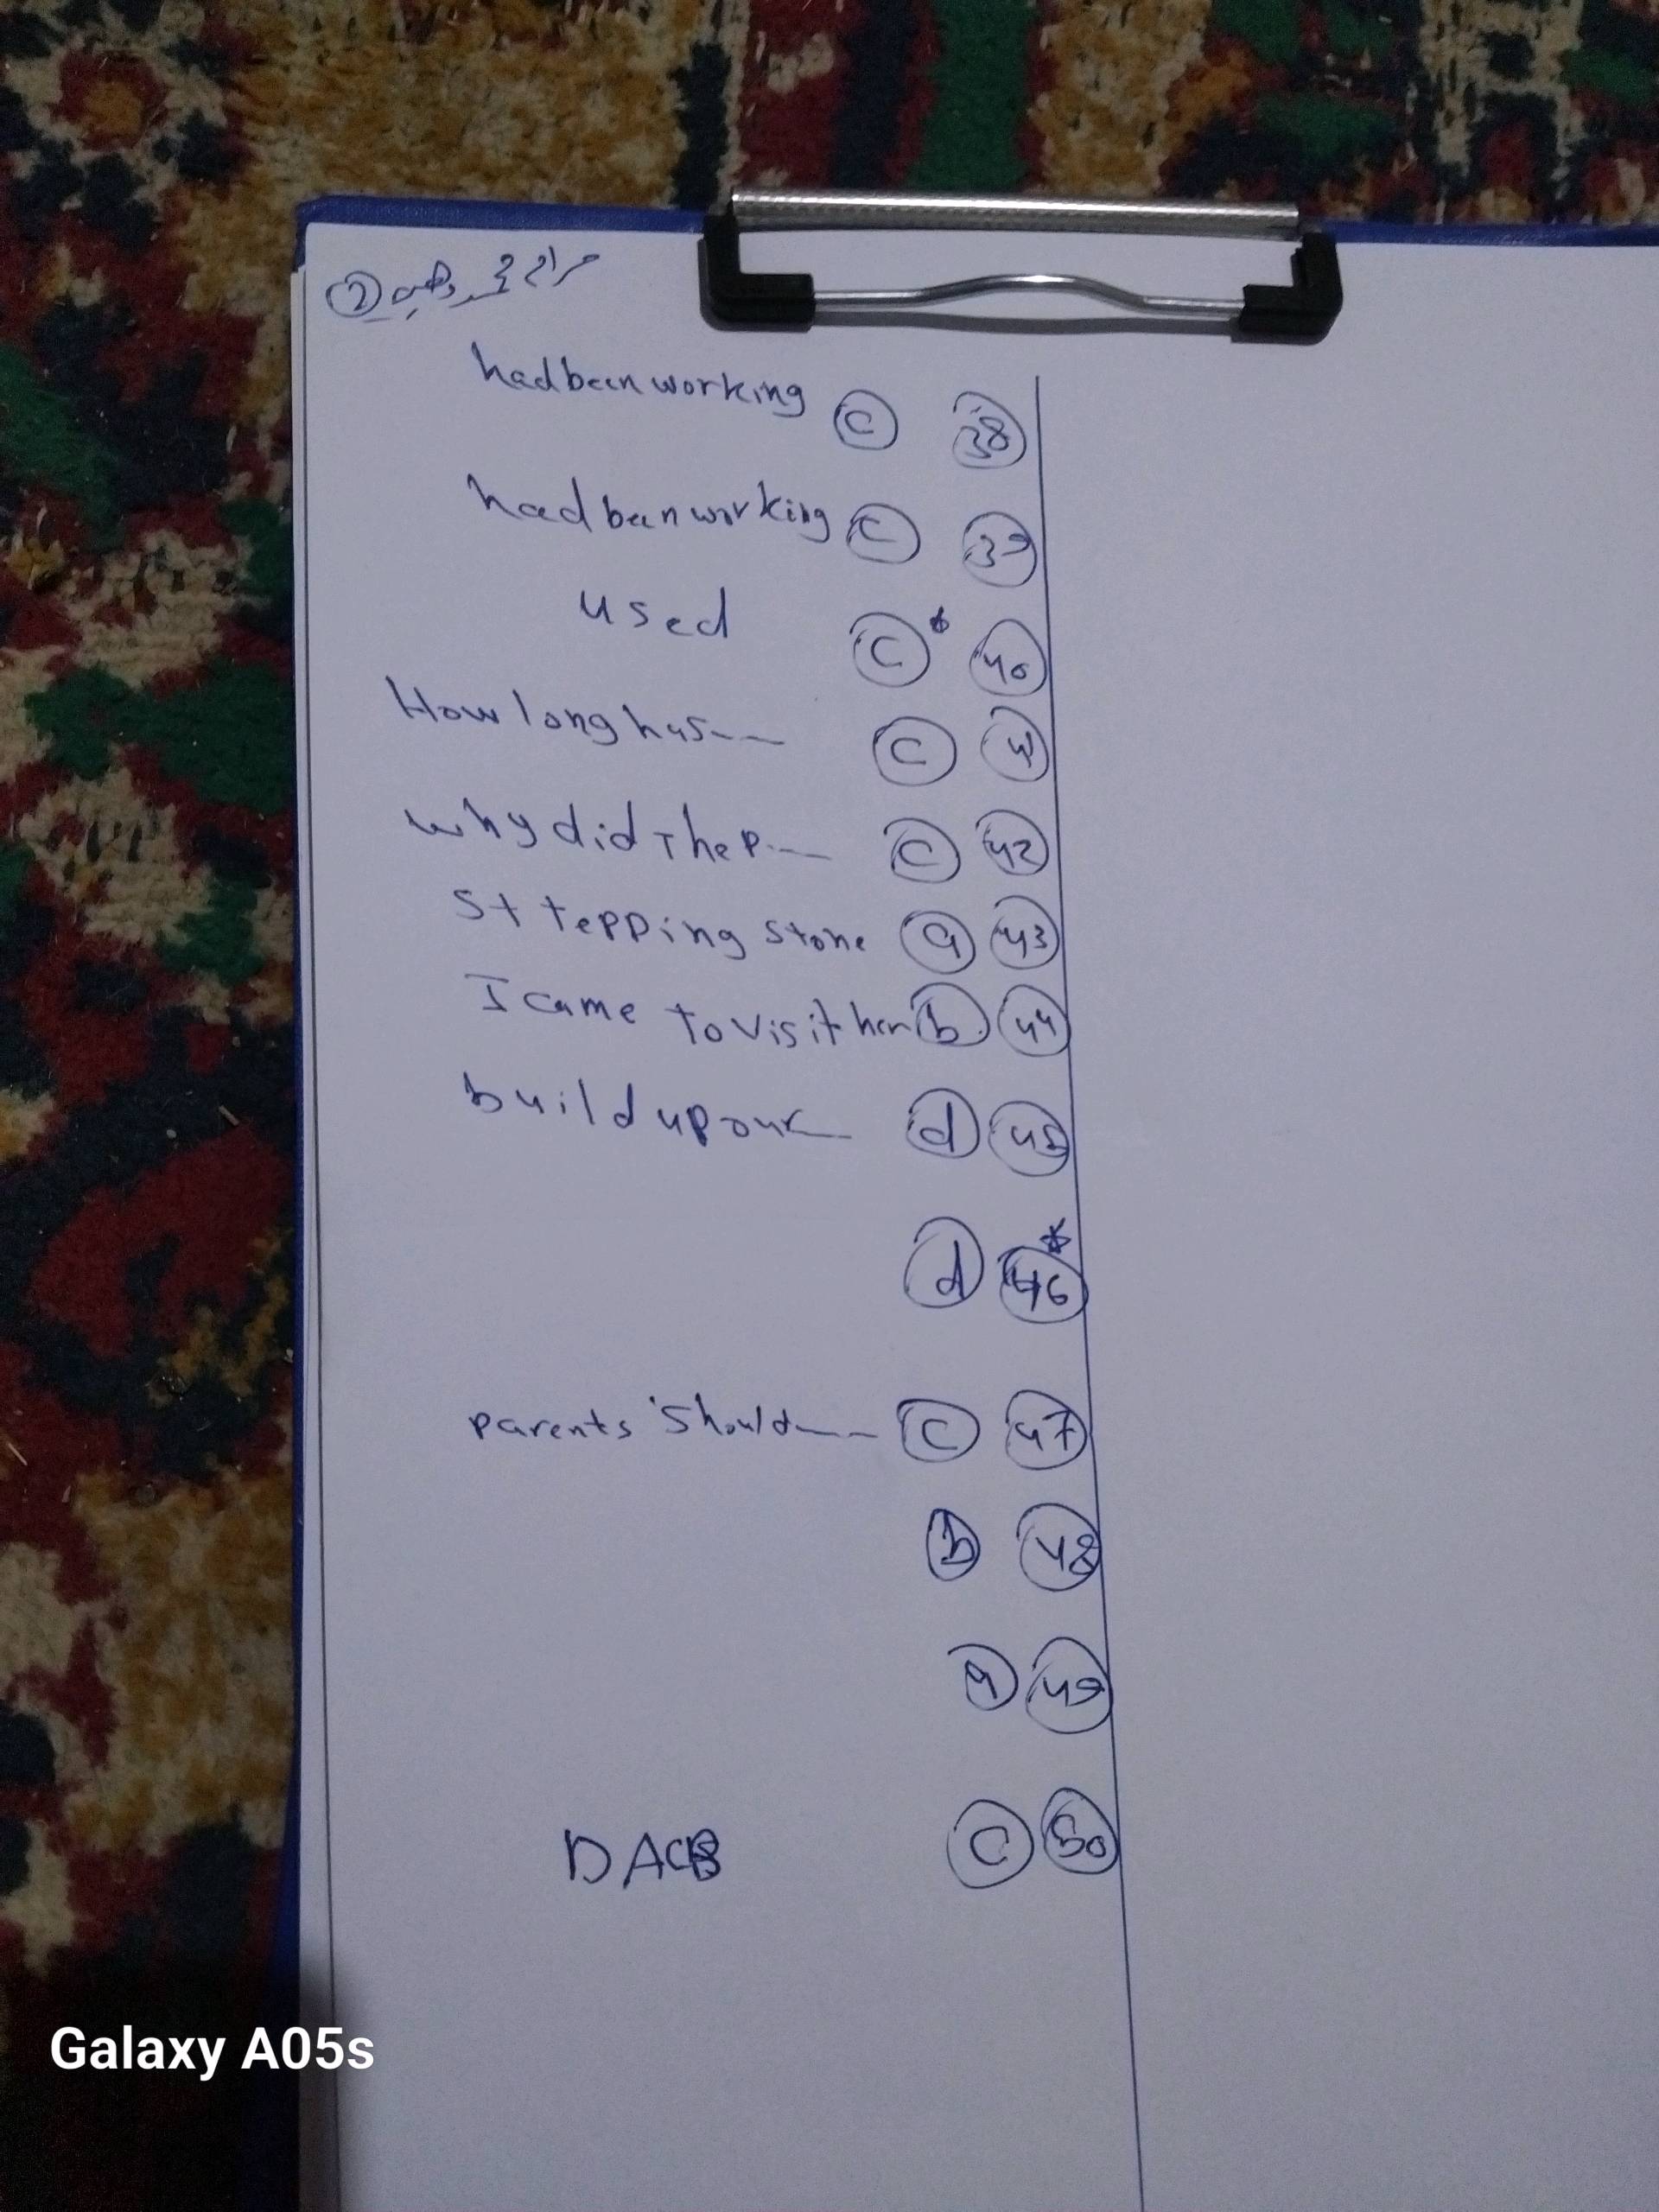 had been working C 38
had been working C 39
used C 40
How long has -- C 41
why did The P -- C 42
St tepping stone a 43
I came to visit her b 44
build up our d 45
d 46
parents should -- C 47
b 48
a 49
DACB C 50
Galaxy A05s